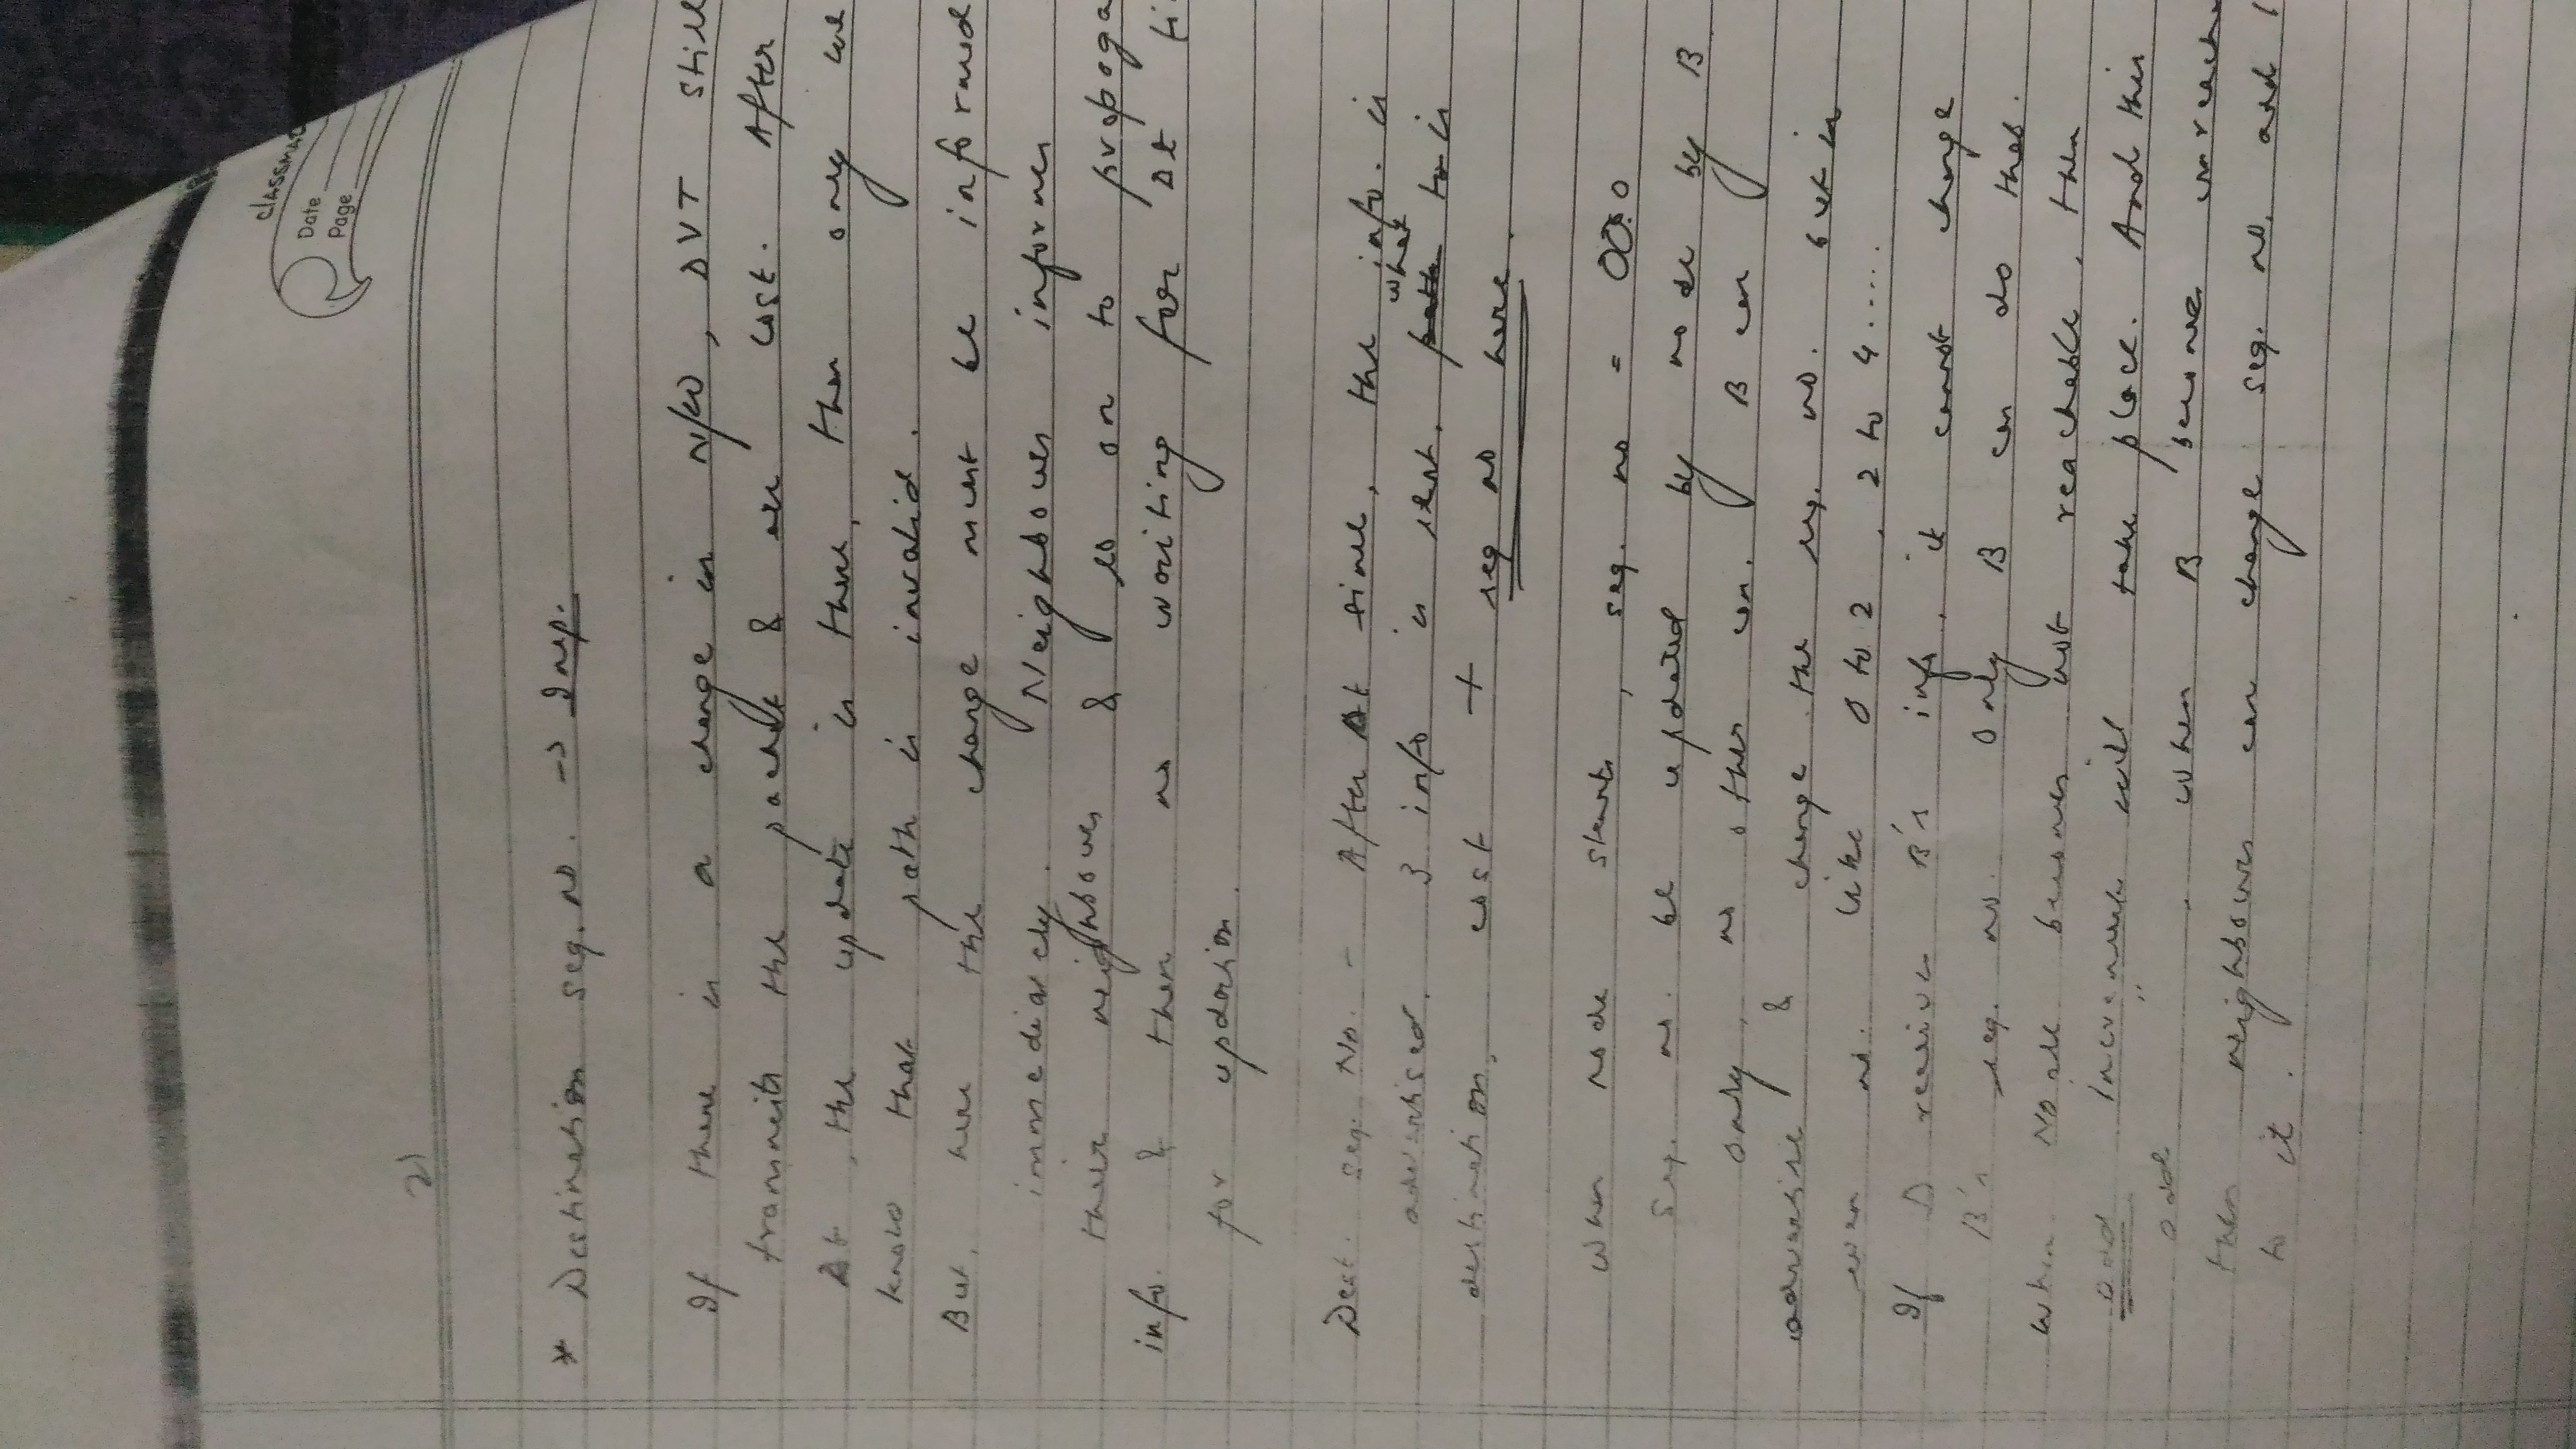 classmat
Date
Page
2)
* Destination seq. no. -> Imp.
If there is a change in N/W, DVT still
transmits the packet & cost. After
Δt, the update is there, then only we
know that path is invalid.
But, here the change must be informed
immediately. Neighbours informes
their neighbours & so on to propaga
info. & then no waiting for Δt ti
for updation.
Dest. seq. No. - After Δt time, the info. is
advertised. 3 info is sent. what is
destination, cost + seq no here.
When node starts, seq. no = 00:0
Seq. no. be updated by node by B
only, no other can. B can
advertise & change the seq. no. but in
even no. like 0 to 2, 2 to 4.....
If D receives B's info, it cannot change
B's seq. no. Only B can do that.
When Node becomes not reachable, then
odd increment will take place. And this
odd " . When B becomes unreach
then neighbours can change seq. no. add 1
to it.